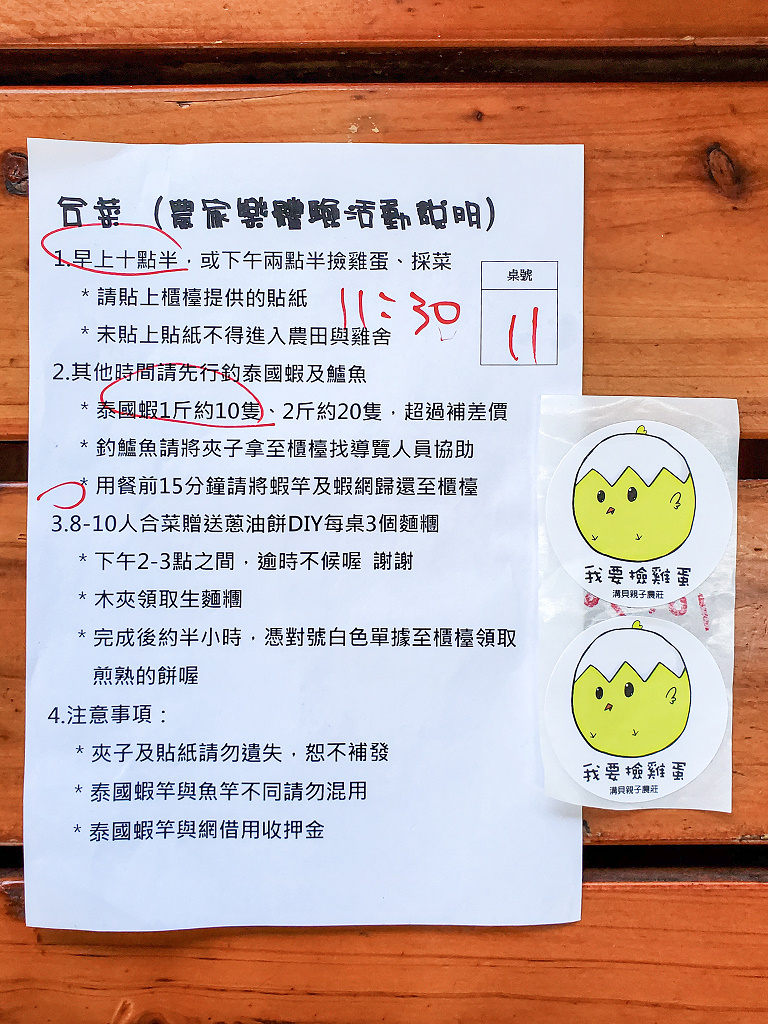 合菜（農家樂體驗活動說明）
1.早上十點半，或下午兩點半撿雞蛋、採菜
* 請貼上櫃檯提供的貼紙
* 未貼上貼紙不得進入農田與雞舍
11:30
桌號
11
2.其他時間請先行釣泰國蝦及鱸魚
* 泰國蝦1斤約10隻、2斤約20隻，超過補差價
* 釣鱸魚請將夾子拿至櫃檯找導覽人員協助
* 用餐前15分鐘請將蝦竿及蝦網歸還至櫃檯
3.8-10人合菜贈送蔥油餅DIY每桌3個麵糰
* 下午2-3點之間，逾時不候喔 謝謝
* 木夾領取生麵糰
* 完成後約半小時，憑對號白色單據至櫃檯領取
煎熟的餅喔
4.注意事項：
* 夾子及貼紙請勿遺失，恕不補發
* 泰國蝦竿與魚竿不同請勿混用
* 泰國蝦竿與網借用收押金
我要撿雞蛋
溝貝親子農莊
我要撿雞蛋
溝貝親子農莊